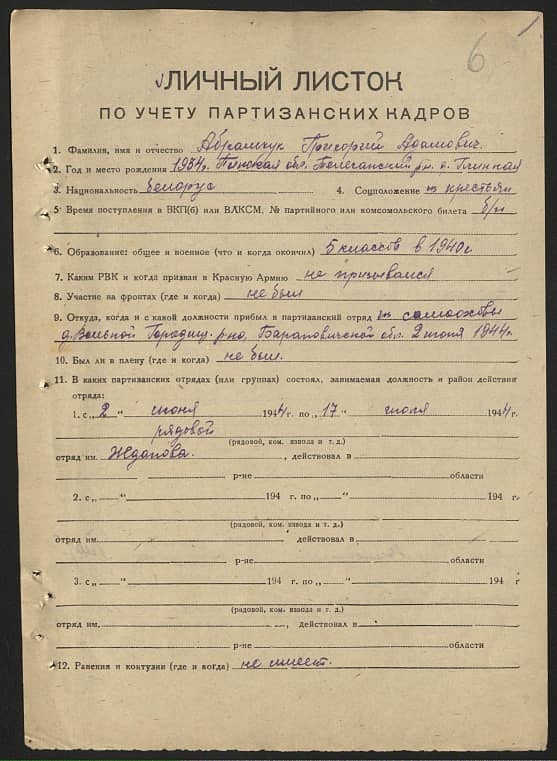 6
ЛИЧНЫЙ ЛИСТОК
ПО УЧЕТУ ПАРТИЗАНСКИХ КАДРОВ
1. Фамилия, имя и отчество Абрамчук Григорий Адамович.
2. Год и место рождения 1934г. Пинская обл. Телеханский р-н. д. Глинная
3. Национальность белорус 4. Соцположение из крестьян
5. Время поступления в ВКП(б) или ВЛКСМ, № партийного или комсомольского билета б/п
6. Образование: общее и военное (что и когда окончил) 5 классов в 1940г
7. Каким РВК и когда призван в Красную Армию не призывался
8. Участие на фронтах (где и когда) не был
9. Откуда, когда и с какой должности прибыл в партизанский отряд из самооховы
д. Вольной Городищ. р-на, Барановичской обл. 2 июня 1944г.
10. Был ли в плену (где и когда) не был.
11. В каких партизанских отрядах (или группах) состоял, занимаемая должность и район действия
отряда:
1. с „ 2 “ июня 1944 г. по „ 17 “ июля 1944 г.
рядовой
(рядовой, ком. взвода и т. д.)
отряд им. Жданова. , действовал в
р-не области
2. с „ “ 194 г. по „ “ 194 г.
(рядовой, ком. взвода и т. д.)
отряд им. , действовал в
р-не области
3. с „ “ 194 г. по „ “ 194 г
(рядовой, ком. взвода и т. д.)
отряд им. , действовал в
р-не области
12. Ранения и контузии (где и когда) не имеет.